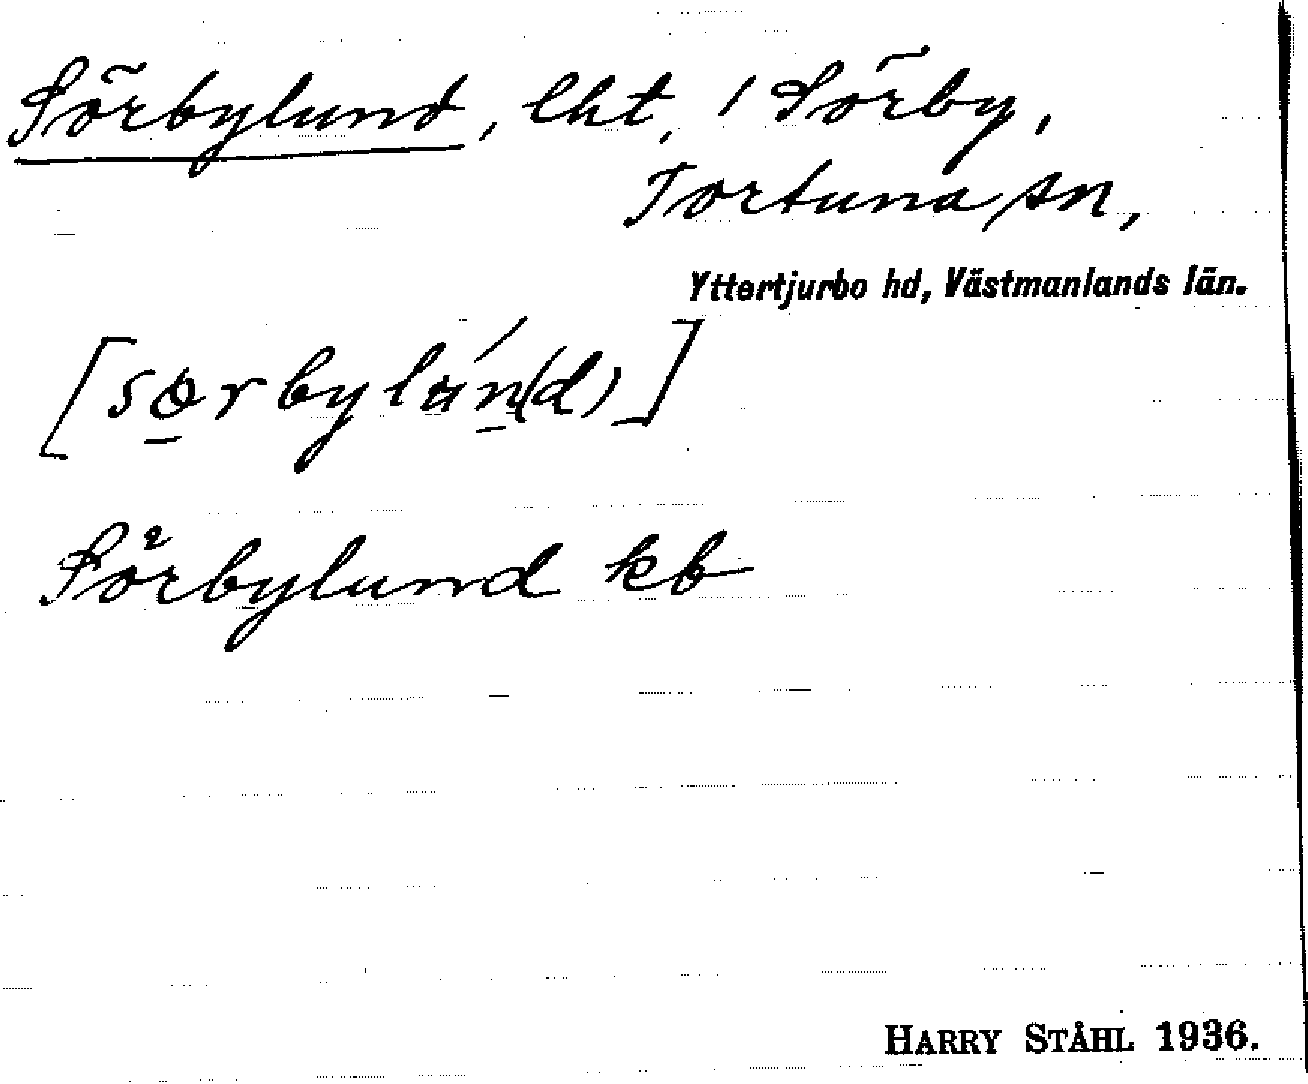 Sörbylund, lht, / Sörby,
Tortuna sn,
Yttertjurbo hd, Västmanlands län.
[sørbylún(d)]
Sörbylund kb
HARRY STÅHL 1936.